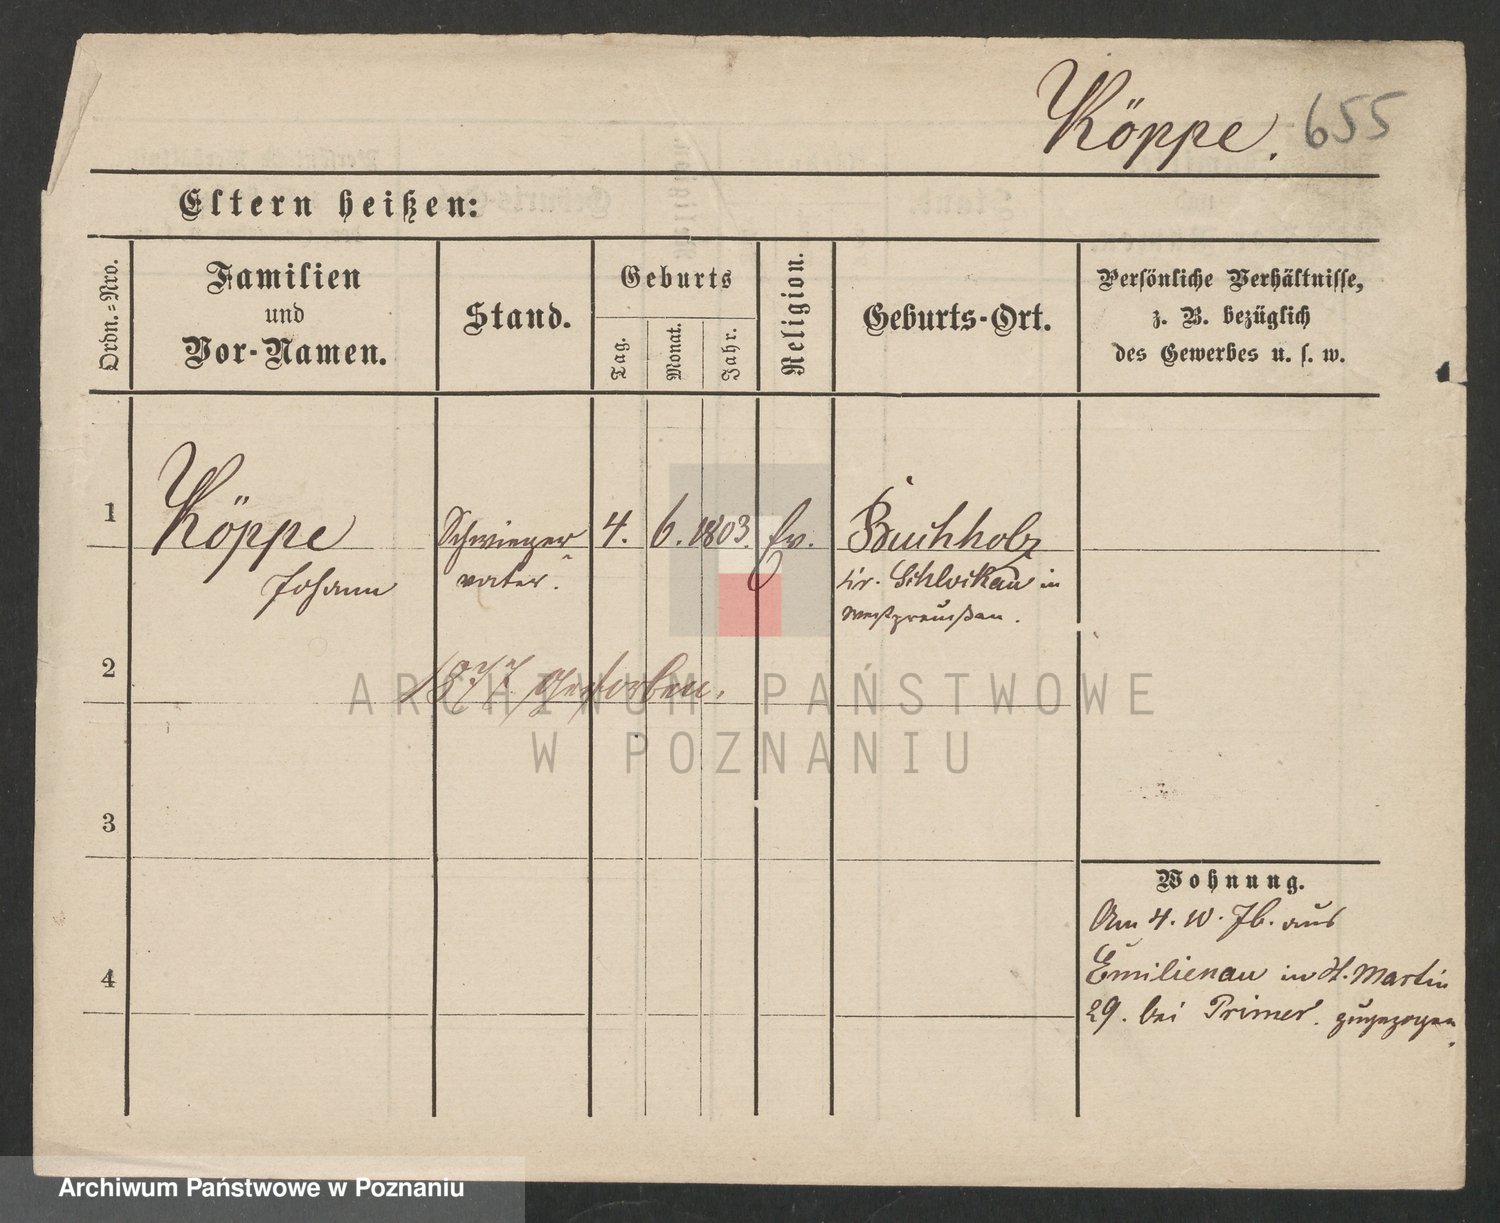 Köppe. 655
Eltern heißen:
Ordn.=Nro.
Familien
und
Vor-Namen.
Stand.
Geburts
Tag.
Monat.
Jahr.
Religion.
Geburts-Ort.
Persönliche Verhältnisse,
z. B. bezüglich
des Gewerbes u. s. w.
1
Köppe
Johann
Schwieger
vater.
4. 6. 1803. Ev.
Buchholz
Kr. Schlockau in
Westpreußen.
2
1877 gestorben.
3
4
Wohnung.
Am 4. 10. 76. aus
Emilienau in St. Martin
29. bei Primer. zugezogen.
ARCHIWUM PAŃSTWOWE
W POZNANIU
Archiwum Państwowe w Poznaniu